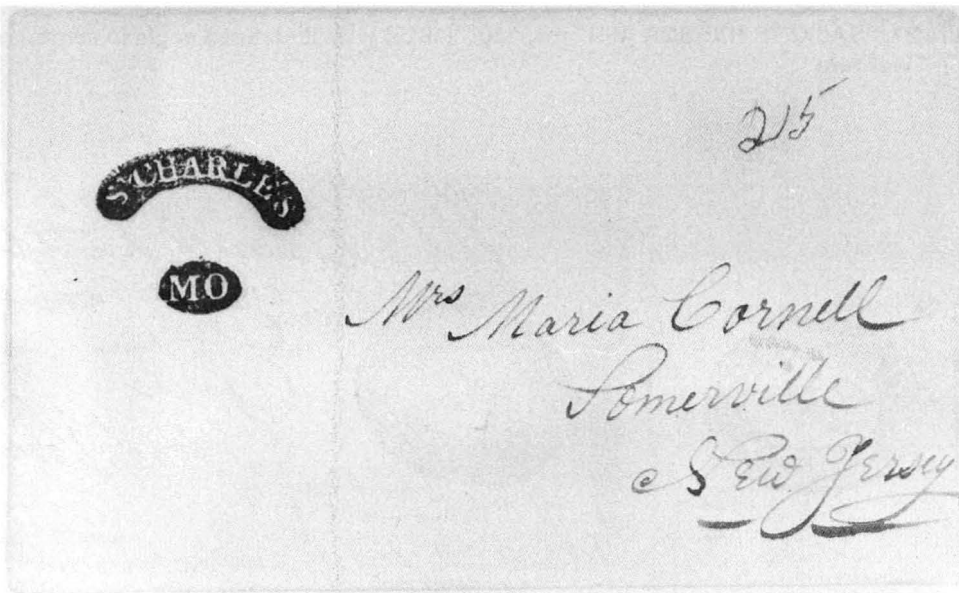 25
ST CHARLES
MO
Mrs Maria Cornell
Somerville
New Jersey